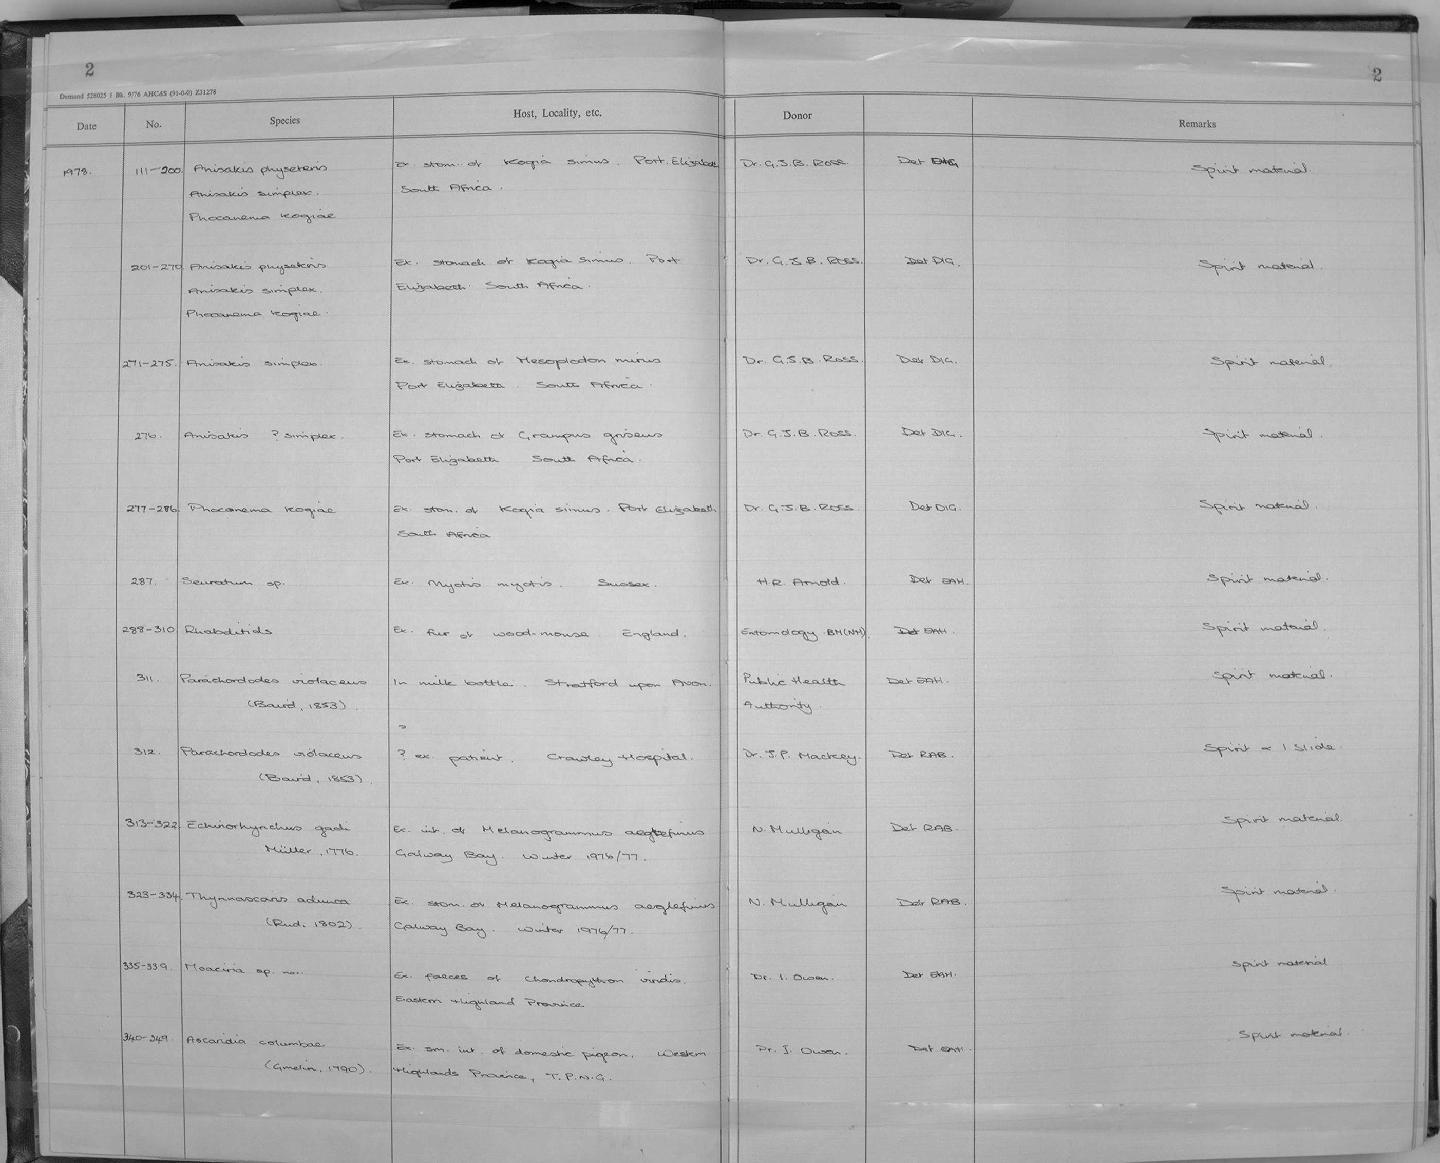 2
2
Demand 528025 1 Bk. 9/76 AHC&S (91-0-0) Z31278
Date No. Species Host, Locality, etc. Donor Remarks
1978. 111-200 Anisakis physeteris Ex. stom. of Kogia simus. Port. Elizabeth Dr. G.J.B. Ross. Det Spirit material.
Anisakis simplex. South Africa.
Phocanema kogiae
201-270 Anisakis physeteris Ex. stomach of Kogia simus. Port Dr. G.J.B. Ross. Det DIG. Spirit material.
Anisakis simplex. Elizabeth. South Africa.
Phocanema kogiae.
271-275. Anisakis simplex. Ex. stomach of Mesoplodon mirus Dr. G.J.B. Ross. Det DIG. Spirit material.
Port Elizabeth. South Africa.
276. Anisakis ? simplex. Ex. stomach of Grampus griseus Dr. G.J.B. Ross. Det DIG. Spirit material.
Port Elizabeth South Africa.
277-286 Phocanema kogiae Ex. stom. of Kogia simus. Port Elizabeth Dr. G.J.B. Ross Det DIG. Spirit material.
South Africa
287. Seuratum sp. Ex. Myotis myotis. Sussex. H.R. Arnold. Det EAH. Spirit material.
288-310 Rhabditids Ex. fur of wood-mouse England. Entomology BM(NH). Det EAH. Spirit material.
311. Parachordodes violaceus In milk bottle. Stratford upon Avon. Public Health Det EAH. Spirit material.
(Baird, 1853). Authority.
312. Parachordodes violaceus ? ex. patient. Crawley Hospital. Dr. J.P. Mackey. Det RAB. Spirit & 1 slide.
(Baird, 1853).
313-322. Echinorhynchus gadi Ex. int. of Melanogrammus aeglefinus N. Mulligan Det RAB. Spirit material.
Müller, 1776. Galway Bay. Winter 1976/77.
323-334 Thynnascaris adunca Ex. stom. of Melanogrammus aeglefinus N. Mulligan Det RAB. Spirit material.
(Rud. 1802). Galway Bay. Winter 1976/77.
335-339. Moaciria sp. nov. Ex. faeces of Chondropython viridis. Dr. I. Owen. Det EAH. Spirit material
Eastern Highland Province
340-349. Ascaridia columbae Ex. sm. int. of domestic pigeon. Western Dr. I. Owen. Det EAH. Spirit material.
(Gmelin, 1790). Highlands Province, T.P.N.G.